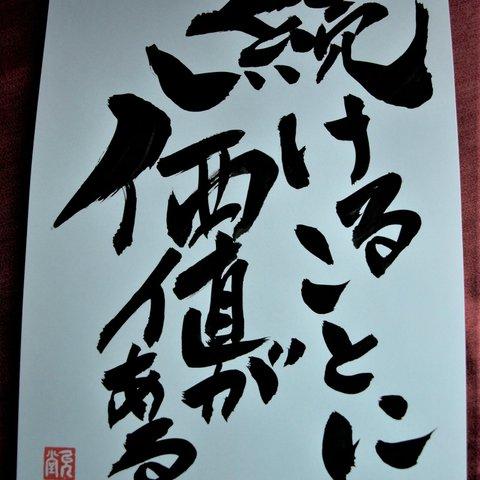 続けることに
価値がある